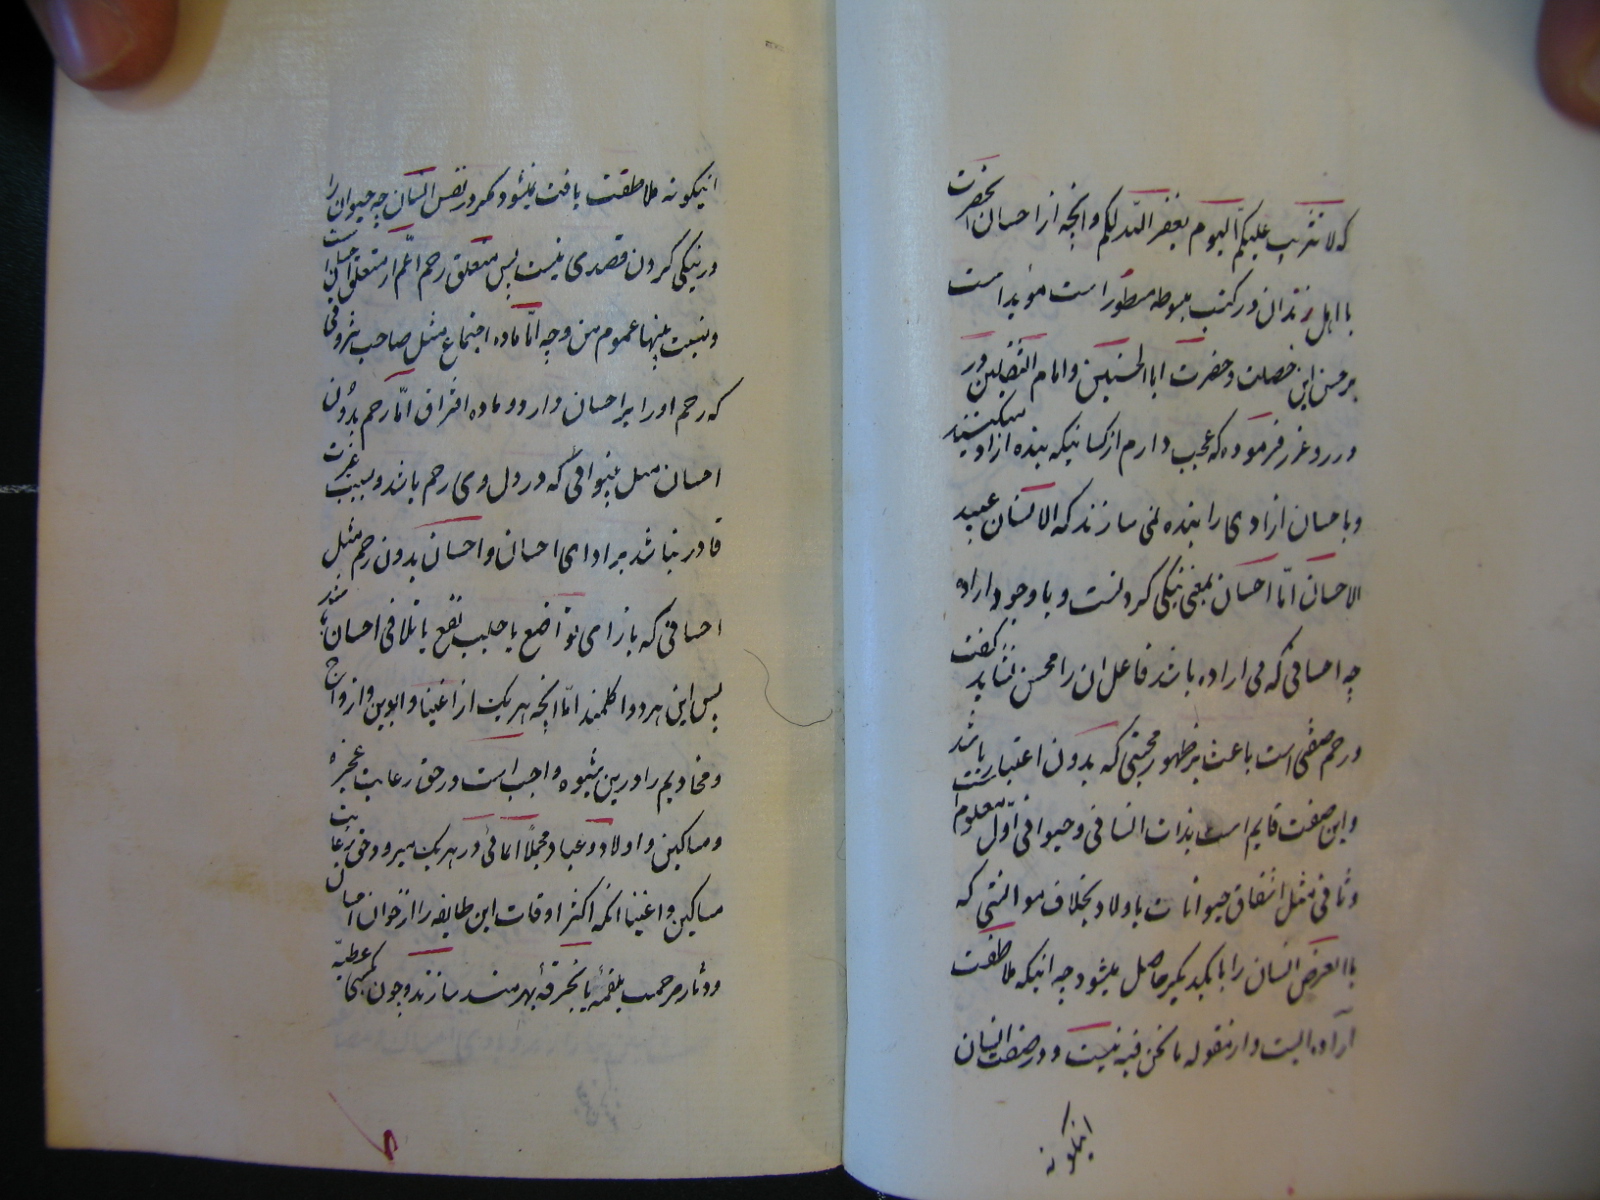 که لا تثریب علیکم الیوم یغفر الله لکم وانچه از احسان انحضرت
با اهل زندان در کتب مبسوطه مسطور است موید است
بر حسن این خصلت و حضرت ابا الحسنین وامام الثقلین در
درر و غرر فرموده که عجب دارم از کسانیکه بنده ازاد میکنند
وباحسان ازادی را بنده نمی سازند که الانسان عبید
الاحسان امّا احسان بمعنی نیکی کردنست و با وجود اراده
چه احسانی که بی اراده باشد فاعل ان را محسن نشاید گفت
ورحم صفتی است باعث بر ظهور محبتی که بدون اعتبار باشد
واین صفت قایم است بذات انسانی وحیوانی اوّل معلوم است
وثانی مثل اشفاق حیوانات باولاد بخلاف موانستی که
بالعرض انسان را با یکدیگر حاصل میشود چه اینکه ملاطفت
اراده الست واز مقوله ما نحن فیه نیست ودر صنف انسان
اینکونه
اینکونه ملاطفت یافت میشود مکر در نفس انسان چه حیوان را
در نیکی کردن قصدی نیست پس متعلق رحم اعم از متعلق احسان است
ونسبت بینهما عموم من وجه امّا ماده اجتماع مثل صاحب ثروتی
که رحم اورا بر احسان دارد وماده افتراق امّا رحم بدون
احسان مثل بینوائی که در دل وی رحم باشد وبسبب
قادر نباشد بر ادای احسان واحسان بدون رحم مثل
احسانی که بازای تواضع یا جلب نفع یا تلافی احسان باشد
پس این هر دو اکلمند امّا انچه هریک از اغنیا وابوین وازواج
ومخادیم را درین شیوه واجب است در حق رعایت عجزه
ومساکین واولاد وعباد مجملاً ایمائی در هریک میرود حق رعایت
مساکین واغنیا انکه اکثر اوقات این طایفه را از خوان احسان
ودثار مرحمت بلقمهٔ یا بخرقهٔ بهرمند سازند وچون عطیّه